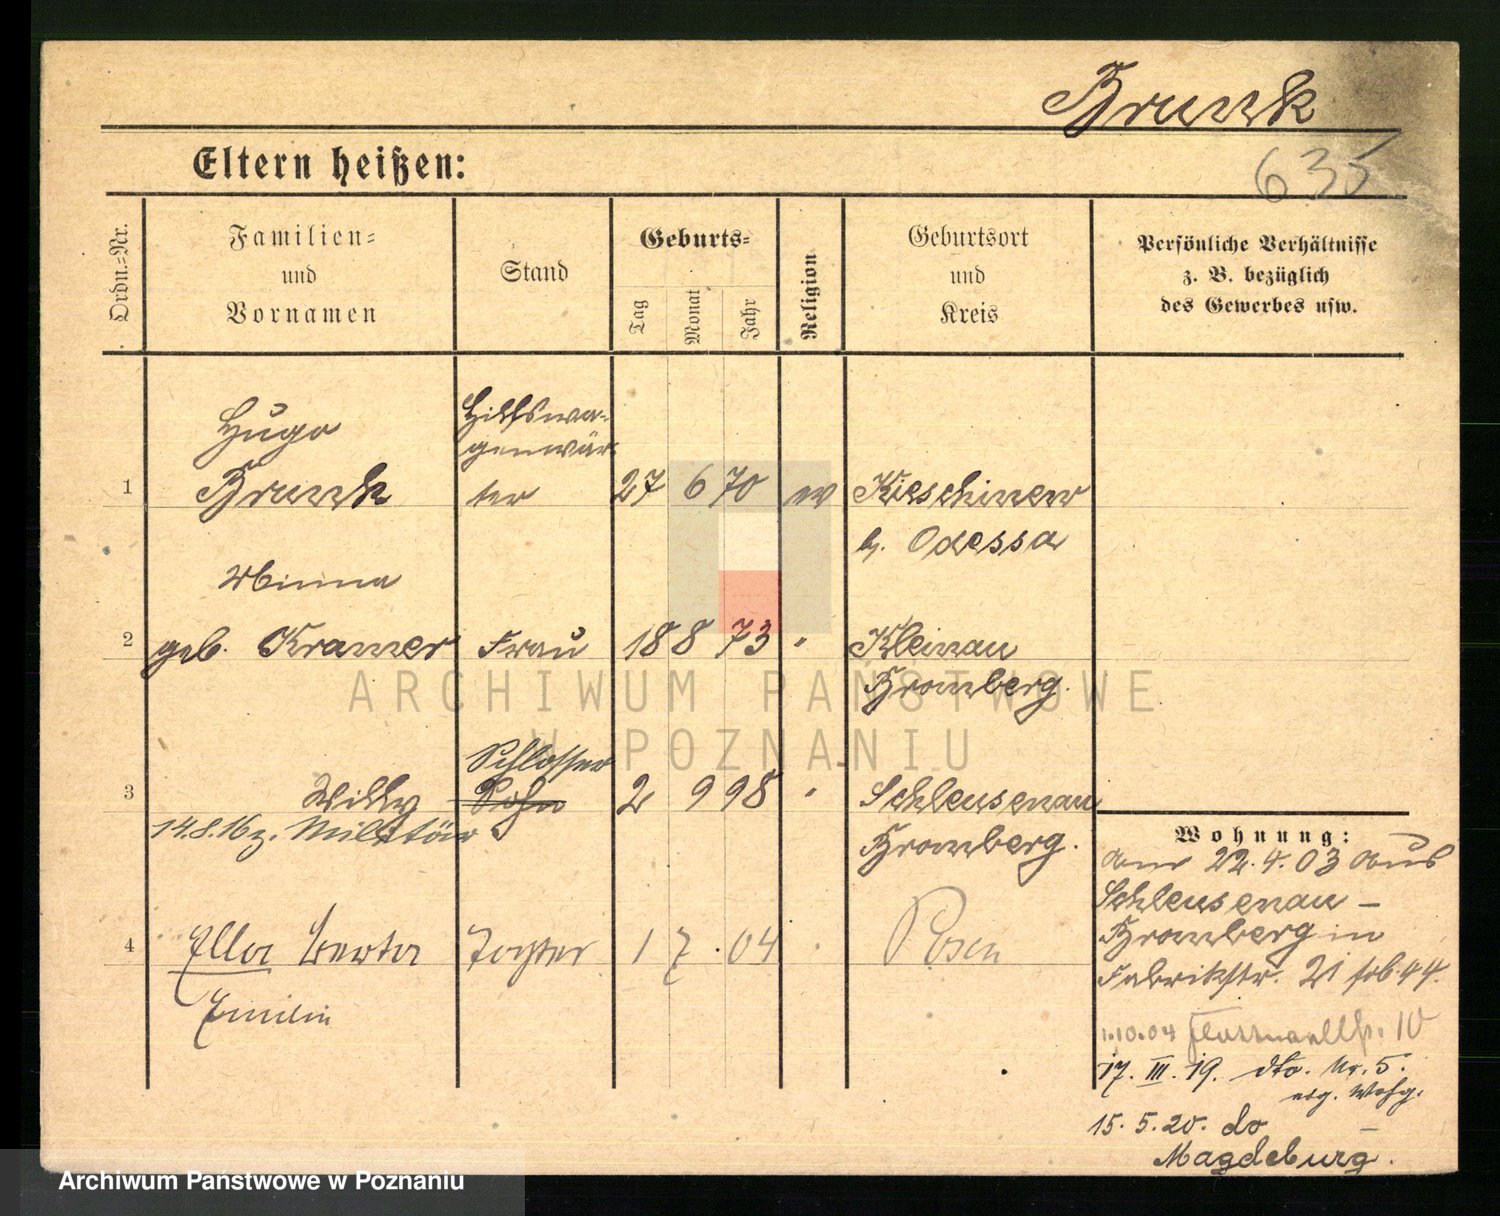 Brunk
635
Eltern heißen:
Ordn.=Nr.
Familien=
und
Vornamen
Stand
Geburts=
Tag
Monat
Jahr
Religion
Geburtsort
und
Kreis
Persönliche Verhältnisse
z. B. bezüglich
des Gewerbes usw.
Hugo
Hilfswa-
genwär-
1 Brunk ter 27 6 70 ev Kieschinew
b. Odessa
Minna
2 geb. Kramer Frau 18 8 73 " Kleinau
Bromberg.
Schlosser
3 Willy Sohn 2 9 98 " Schleusenau
14.8.16 z. Militär
Bromberg.
4 Ella Berta Tochter 1 7 . 04 Posen
Emilie
Wohnung:
am 22.4.03 aus
Schleusenau –
Bromberg in
Fabrikstr. 21
1.10.04 10
17. III. 19. dto. Nr. 5.
eig. Wohg.
15. 5. 20. do
Magdeburg.
ARCHIWUM PAŃSTWOWE
W POZNANIU
Archiwum Państwowe w Poznaniu